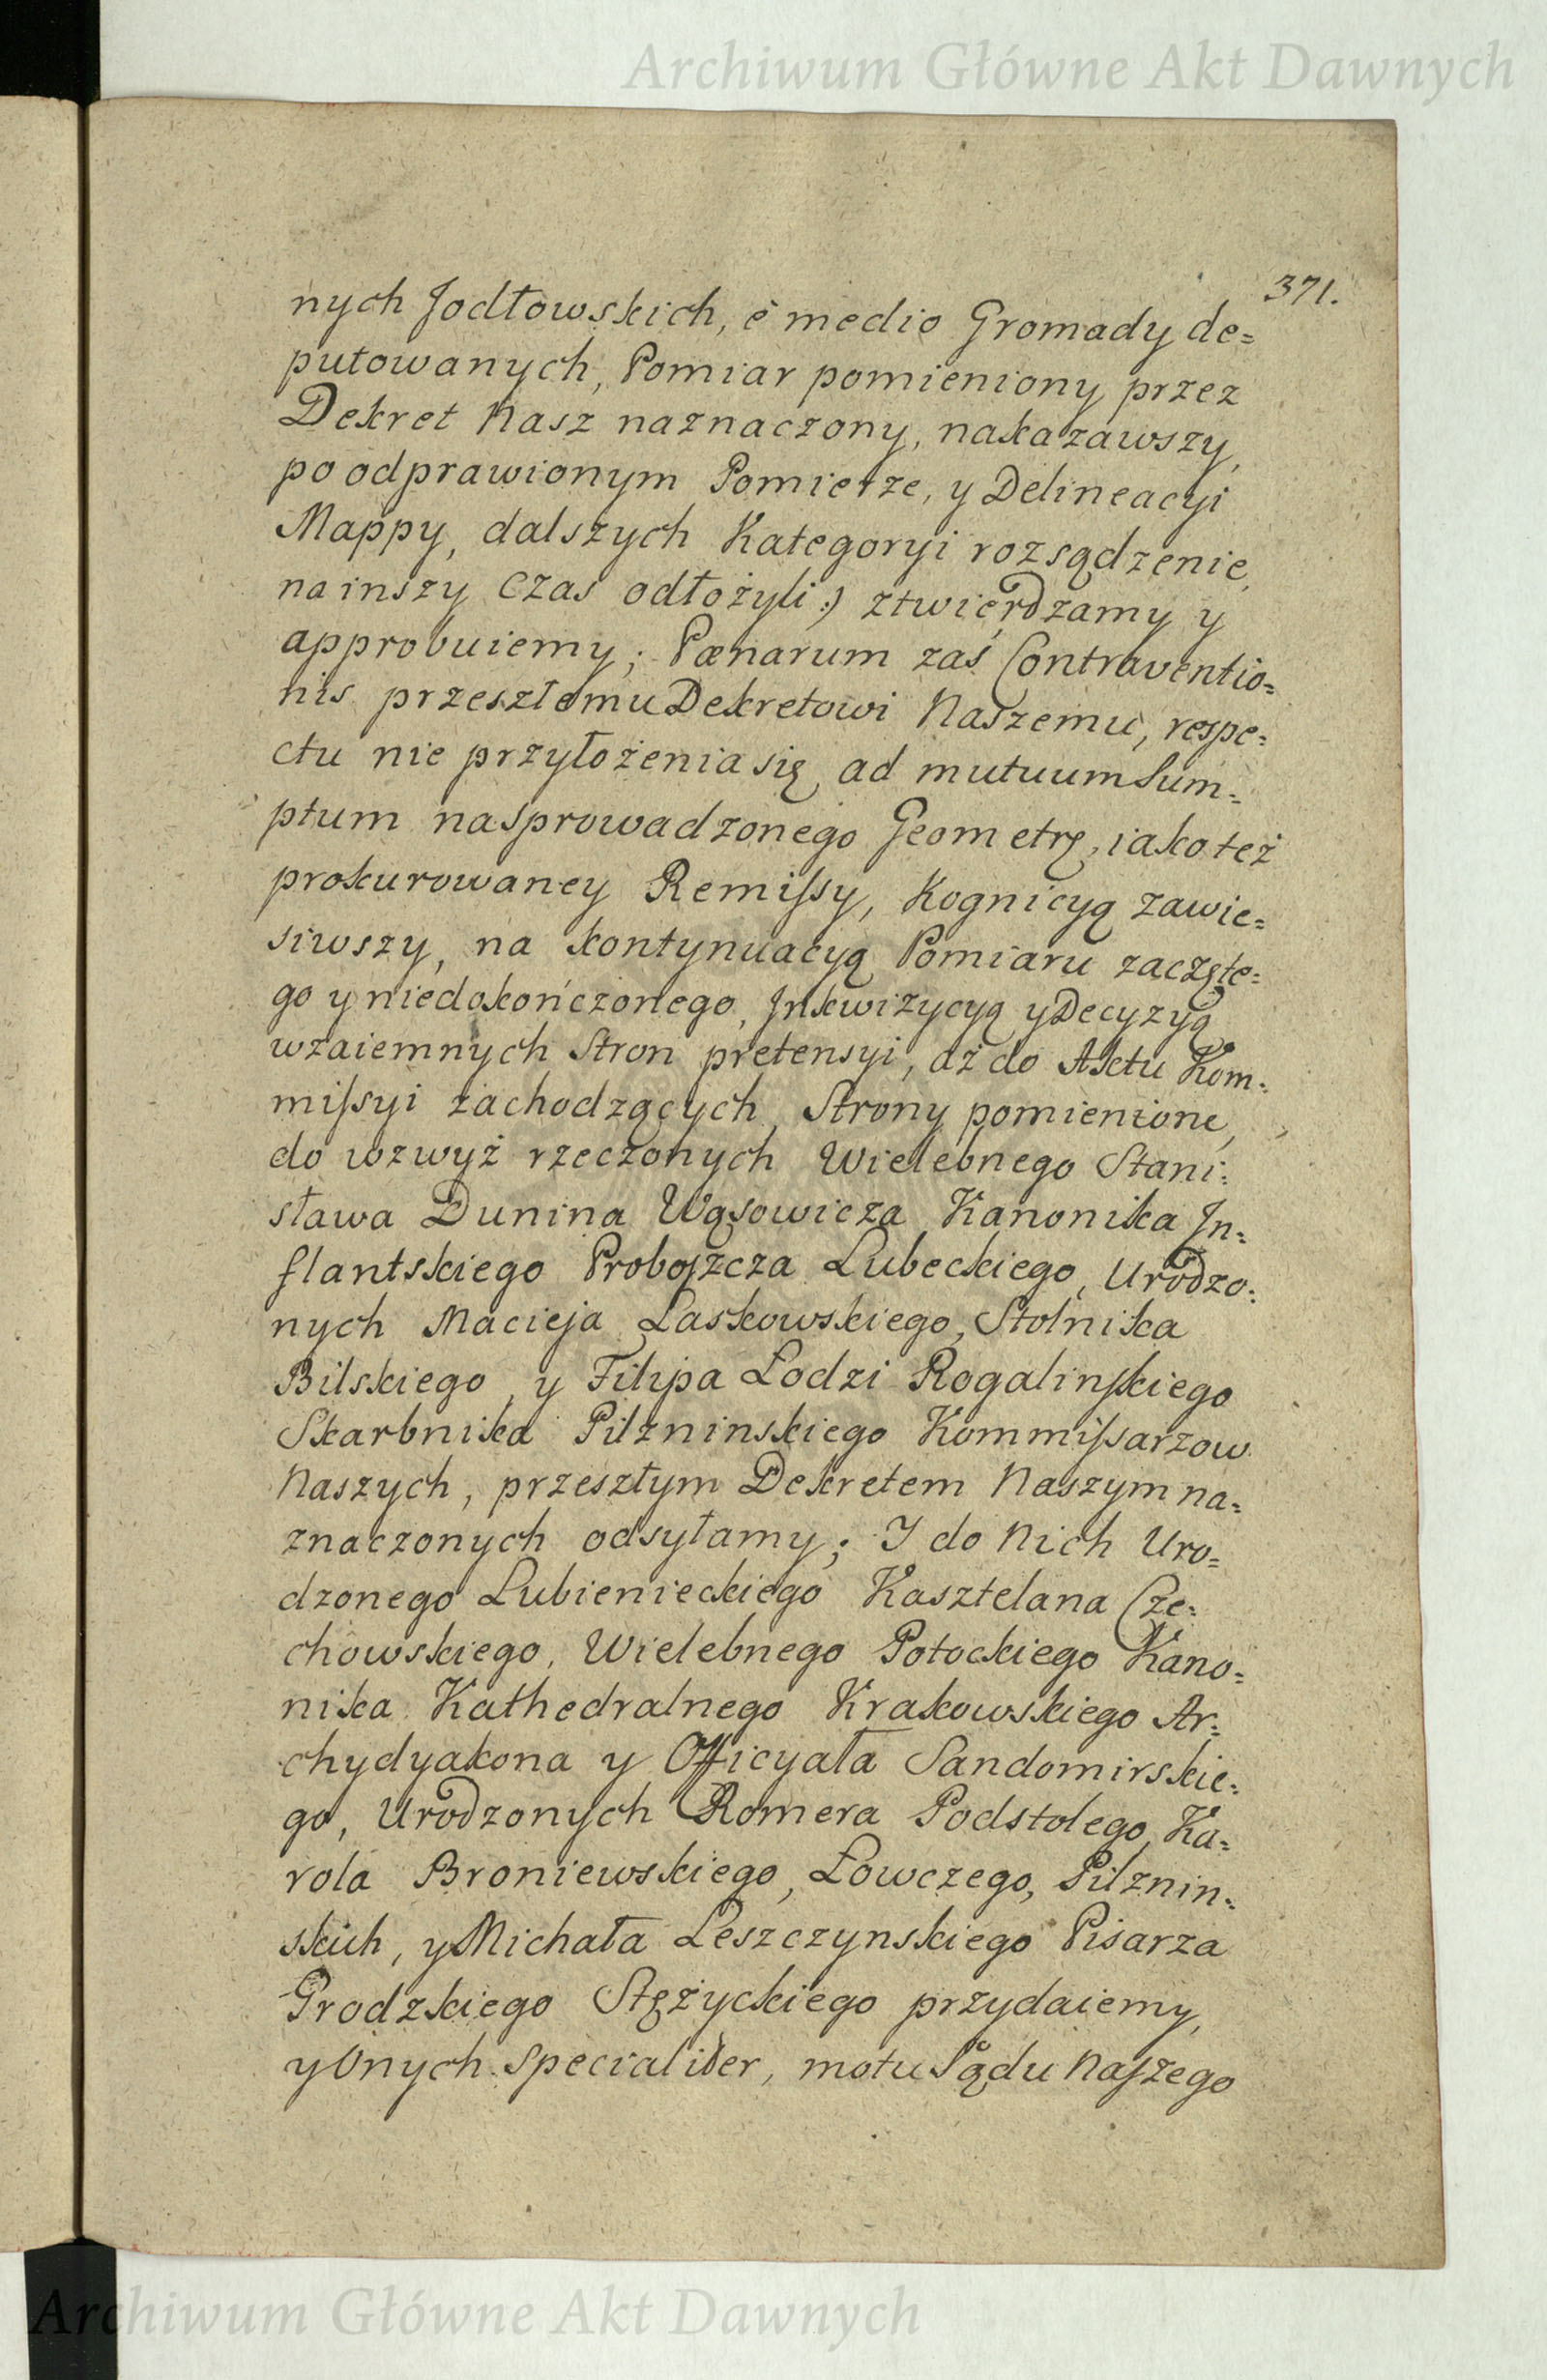 Archiwum Główne Akt Dawnych
371.
nych Jodłowskich, è medio Gromady de=
putowanych, Pomiar pomieniony przez
Dekret Nasz naznaczony, nakazawszy,
po odprawionym Pomierze, y Delineacyi
Mappy, dalszych Kategoryi rozsądzenie,
na inszy czas odłożyli:) ztwierdzamy y
approbuiemy; Pænarum zaś Contraventio=
nis przeszłemu Dekretowi Naszemu, respe=
ctu nie przyłożenia się ad mutuum Sum=
ptum na sprowadzonego Geometrę, iako też
prokurowaney Remiſsy, Kognicyą zawie=
siwszy, na kontynuacyą Pomiaru zaczęte=
go y niedokończonego, Inkwizycyą y Decyzyą
wzaiemnych Stron pretensyi, aż do Aktu Kom=
miſsyi zachodzących, Strony pomienione,
do wzwyż rzeczonych Wielebnego Stani=
sława Dunina Wąsowicza Kanonika In=
flantskiego Proboſzcza Lubeckiego, Urodzo=
nych Macieja Laskowskiego, Stolnika
Bilskiego, y Filipa Łodzi Rogalinſkiego
Skarbnika Pilzninskiego Kommiſsarzow
Naszych, przeszłym Dekretem Naszym na=
znaczonych odsyłamy; I do Nich Uro=
dzonego Lubienieckiego Kasztelana Cze=
chowskiego, Wielebnego Potockiego Kano=
nika Kathedralnego Krakowskiego Ar=
chydyakona y Officyała Sandomirskie=
go, Urodzonych Romera Podstolego, Ka=
rola Broniewskiego, Łowczego, Pilznin=
skich, y Michała Leszczynskiego Pisarza
Grodzkiego Stężyckiego przydaiemy,
y Onych specialiter, motu Sądu Naſzego
Archiwum Główne Akt Dawnych